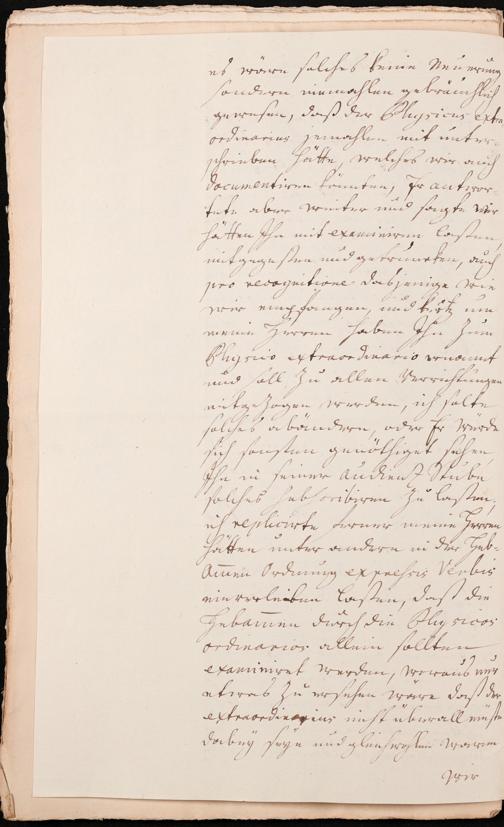 es wäre solches keine Neuerung
sondern niemahlen gebräuchlich
gewesen, daß der Physicus extra
ordinarius jemahlen mit unter-
schrieben hätte, welches wir auch
documentiren könnten, Er antwor-
tete aber weiter und sagte wir
hätten Ihn mit examiniren lassen,
mitgegessen und getruncken, auch
pro recognitione dasjenige wie
wir empfangen, und kurtz um
meine Herren haben Ihn zum
Physico extraordinario ernannt
und soll zu allen Verrichtungen
mitgezogen werden, ich solte
solches abändern, oder Er würde
sich sonsten genöthiget sehen
Ihn in seiner Audientz Stube
solches subscribiren zu lassen,
ich replicirte ferner meine Herren
hätten unter andern in der Heb-
Ammen Ordnung expressis Verbis
einverleiben lassen, daß die
Hebammen durch die Physicos
ordinarios allein sollten
examiniret werden, woraus nur
etwas zu ersehen wäre daß der
extraordinarius nicht überall müste
dabey seyn und gleichwohlen waren
wir